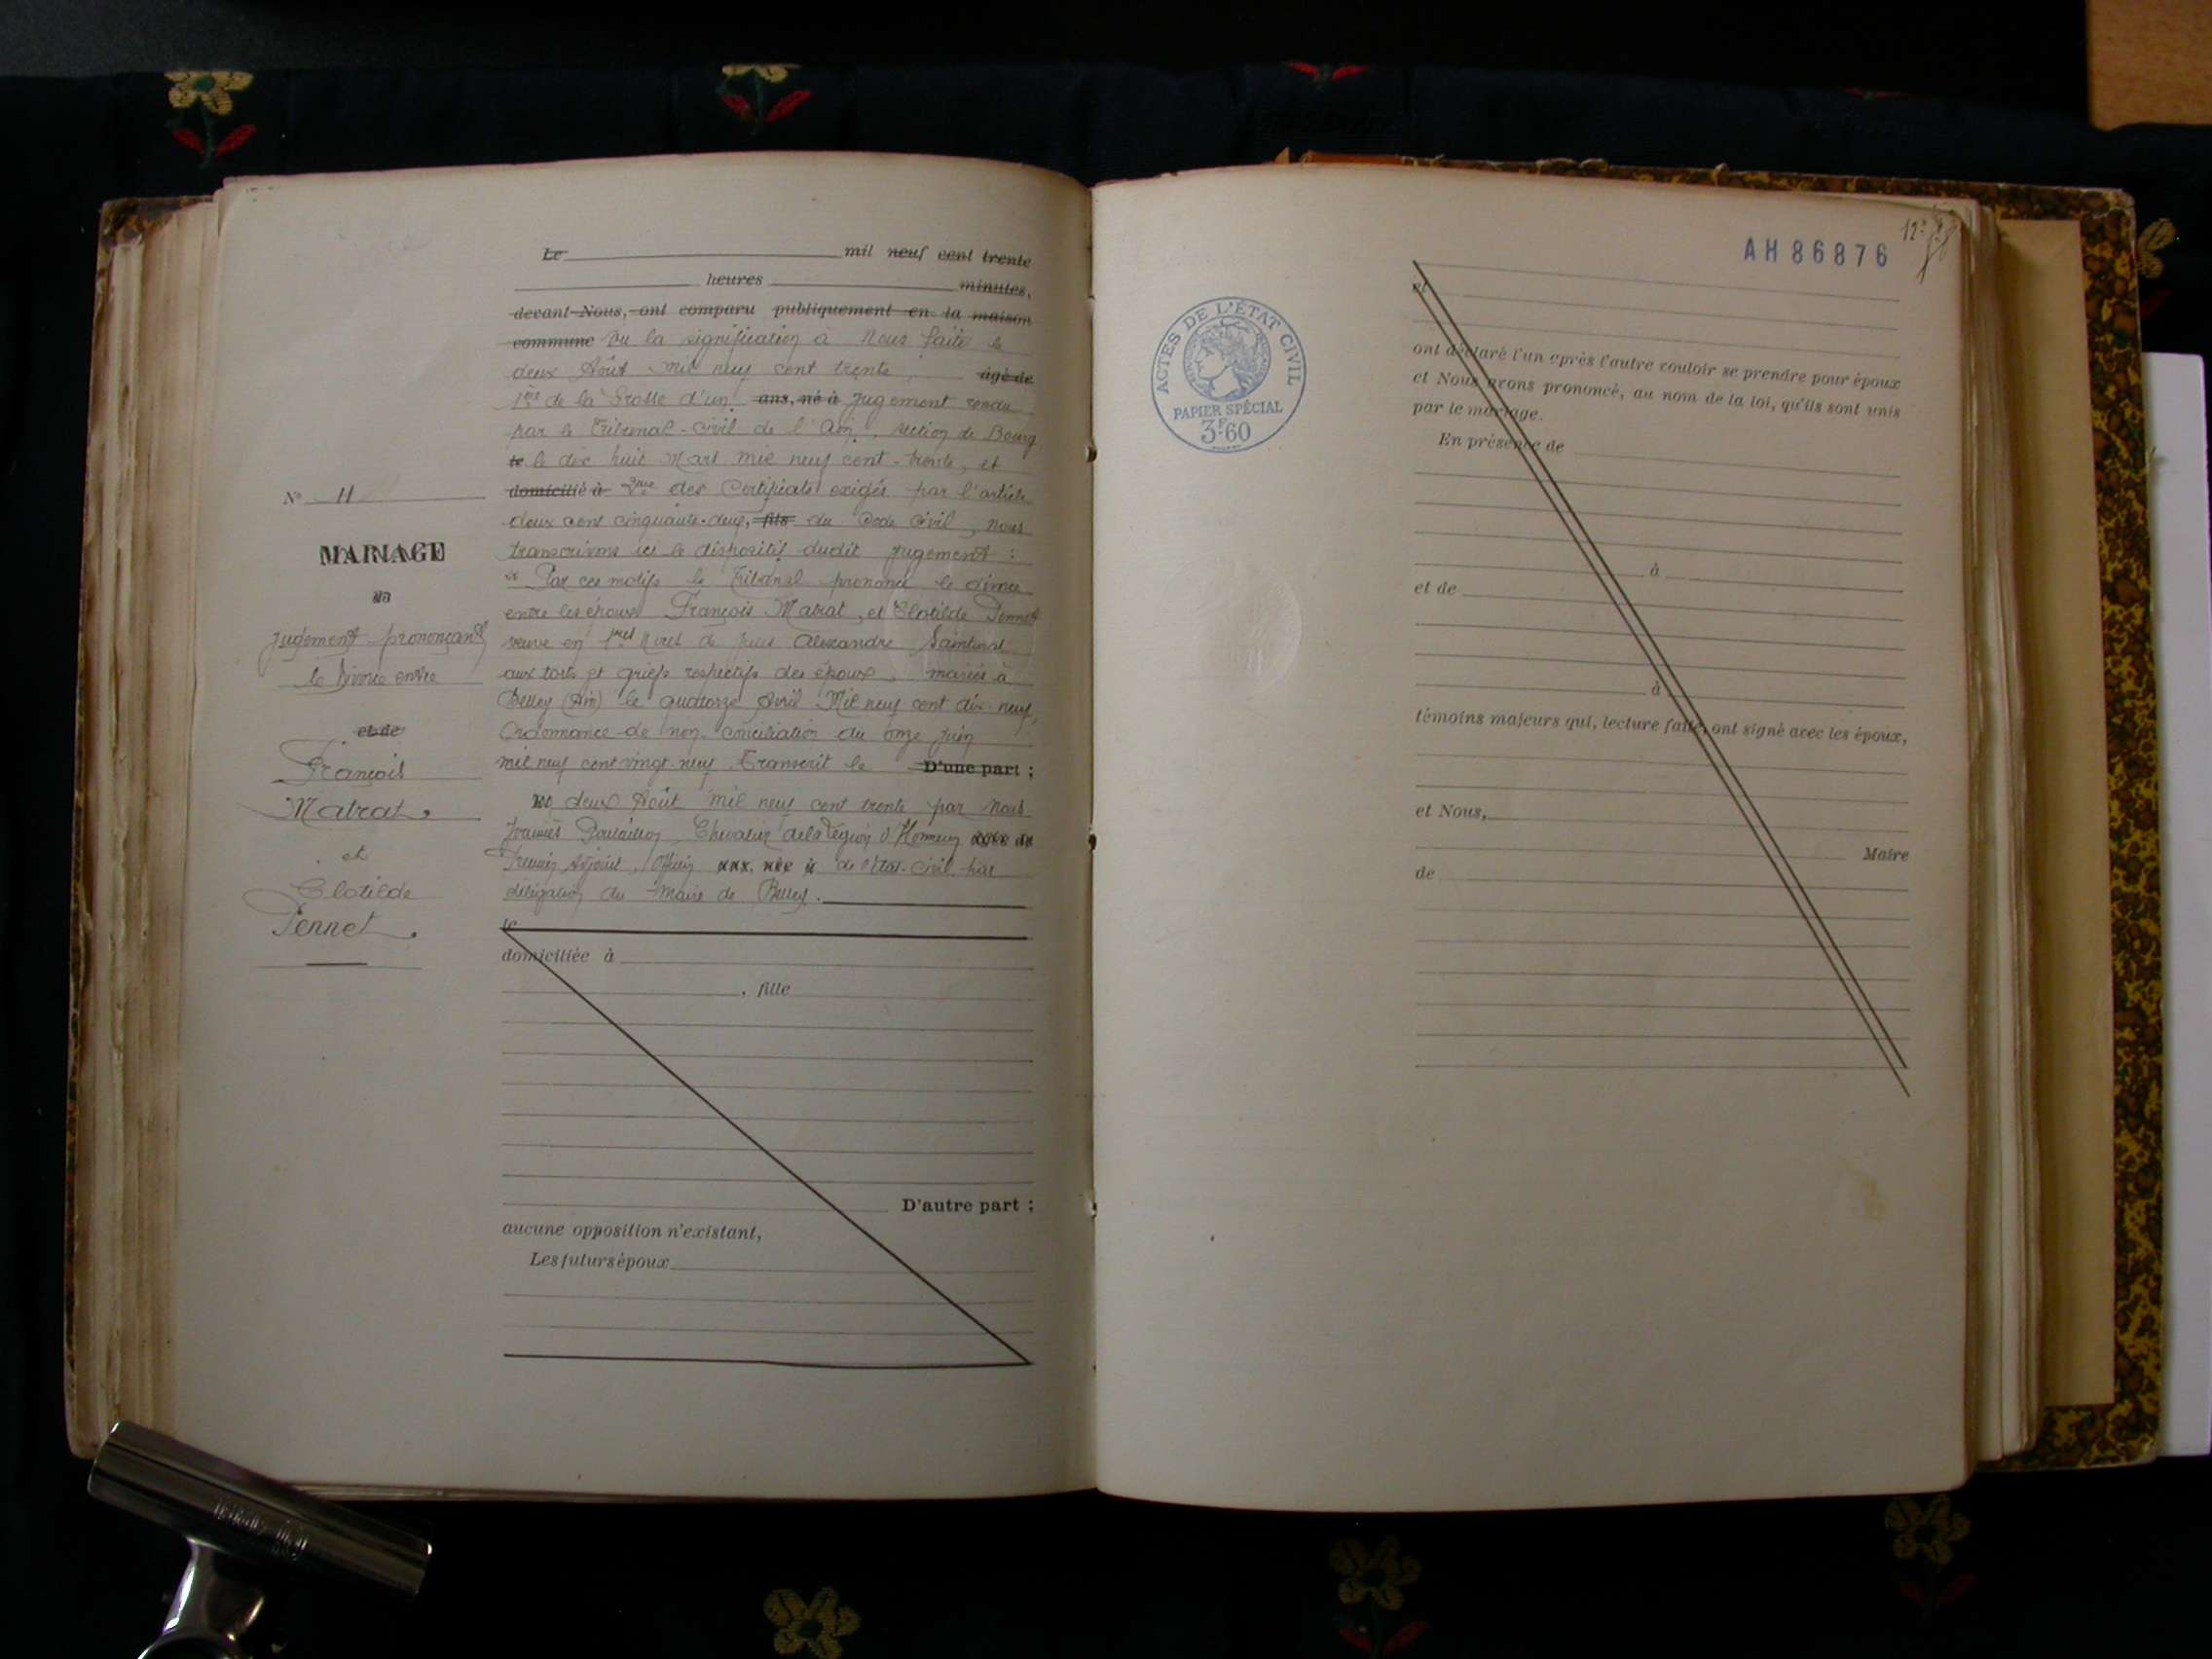 Le mil neuf cent trente
heures minutes,
devant Nous, ont comparu publiquement en la maison
commune Vu la signification à Nous faite le
deux Août mil neuf cent trente, âgé de
1ent de la Grosse d'un ans, né à jugement rendu
par le Tribunal-civil de l'Ain, section de Bourg
le le dix huit Mars mil neuf cent-trente, et
domicilié à 2me des Certificats exigés par l'article
deux cent cinquante-deux, fils du Code Civil, nous
transcrivons ici le dispositif dudit jugement :
" Par ces motifs le Tribunal prononce le divorce
entre les époux François Matrat, et Clotilde Pennet
veuve en 1res Noces de Alexandre
aux torts et griefs respectifs des époux, mariés à
Belley (Ain) le quatorze Avril Mil neuf cent dix-neuf,
Ordonnance de non-conciliation du onze juin
mil neuf cent vingt-neuf. Transcrit le D'une part ;
deux Août mil neuf cent trente par Nous
Chevalier de la Légion d'Honneur âgée de
Premier Adjoint, Officier ans, née à de l'Etat-Civil par
délégation du Maire de Belley.
le
domiciliée à
, fille
D'autre part ;
aucune opposition n'existant,
Les futurs époux
No 11
MARIAGE
Jugement prononçant
le Divorce entre
et de
François
Matrat.
et
Clotilde
Pennet.
AH 86876
ACTES DE L'ÉTAT CIVIL
PAPIER SPÉCIAL
3F60
et
ont déclaré l'un après l'autre vouloir se prendre pour époux
et Nous avons prononcé, au nom de la loi, qu'ils sont unis
par le mariage.
En présence de
à
et de
à
témoins majeurs qui, lecture faite, ont signé avec les époux,
et Nous,
Maire
de